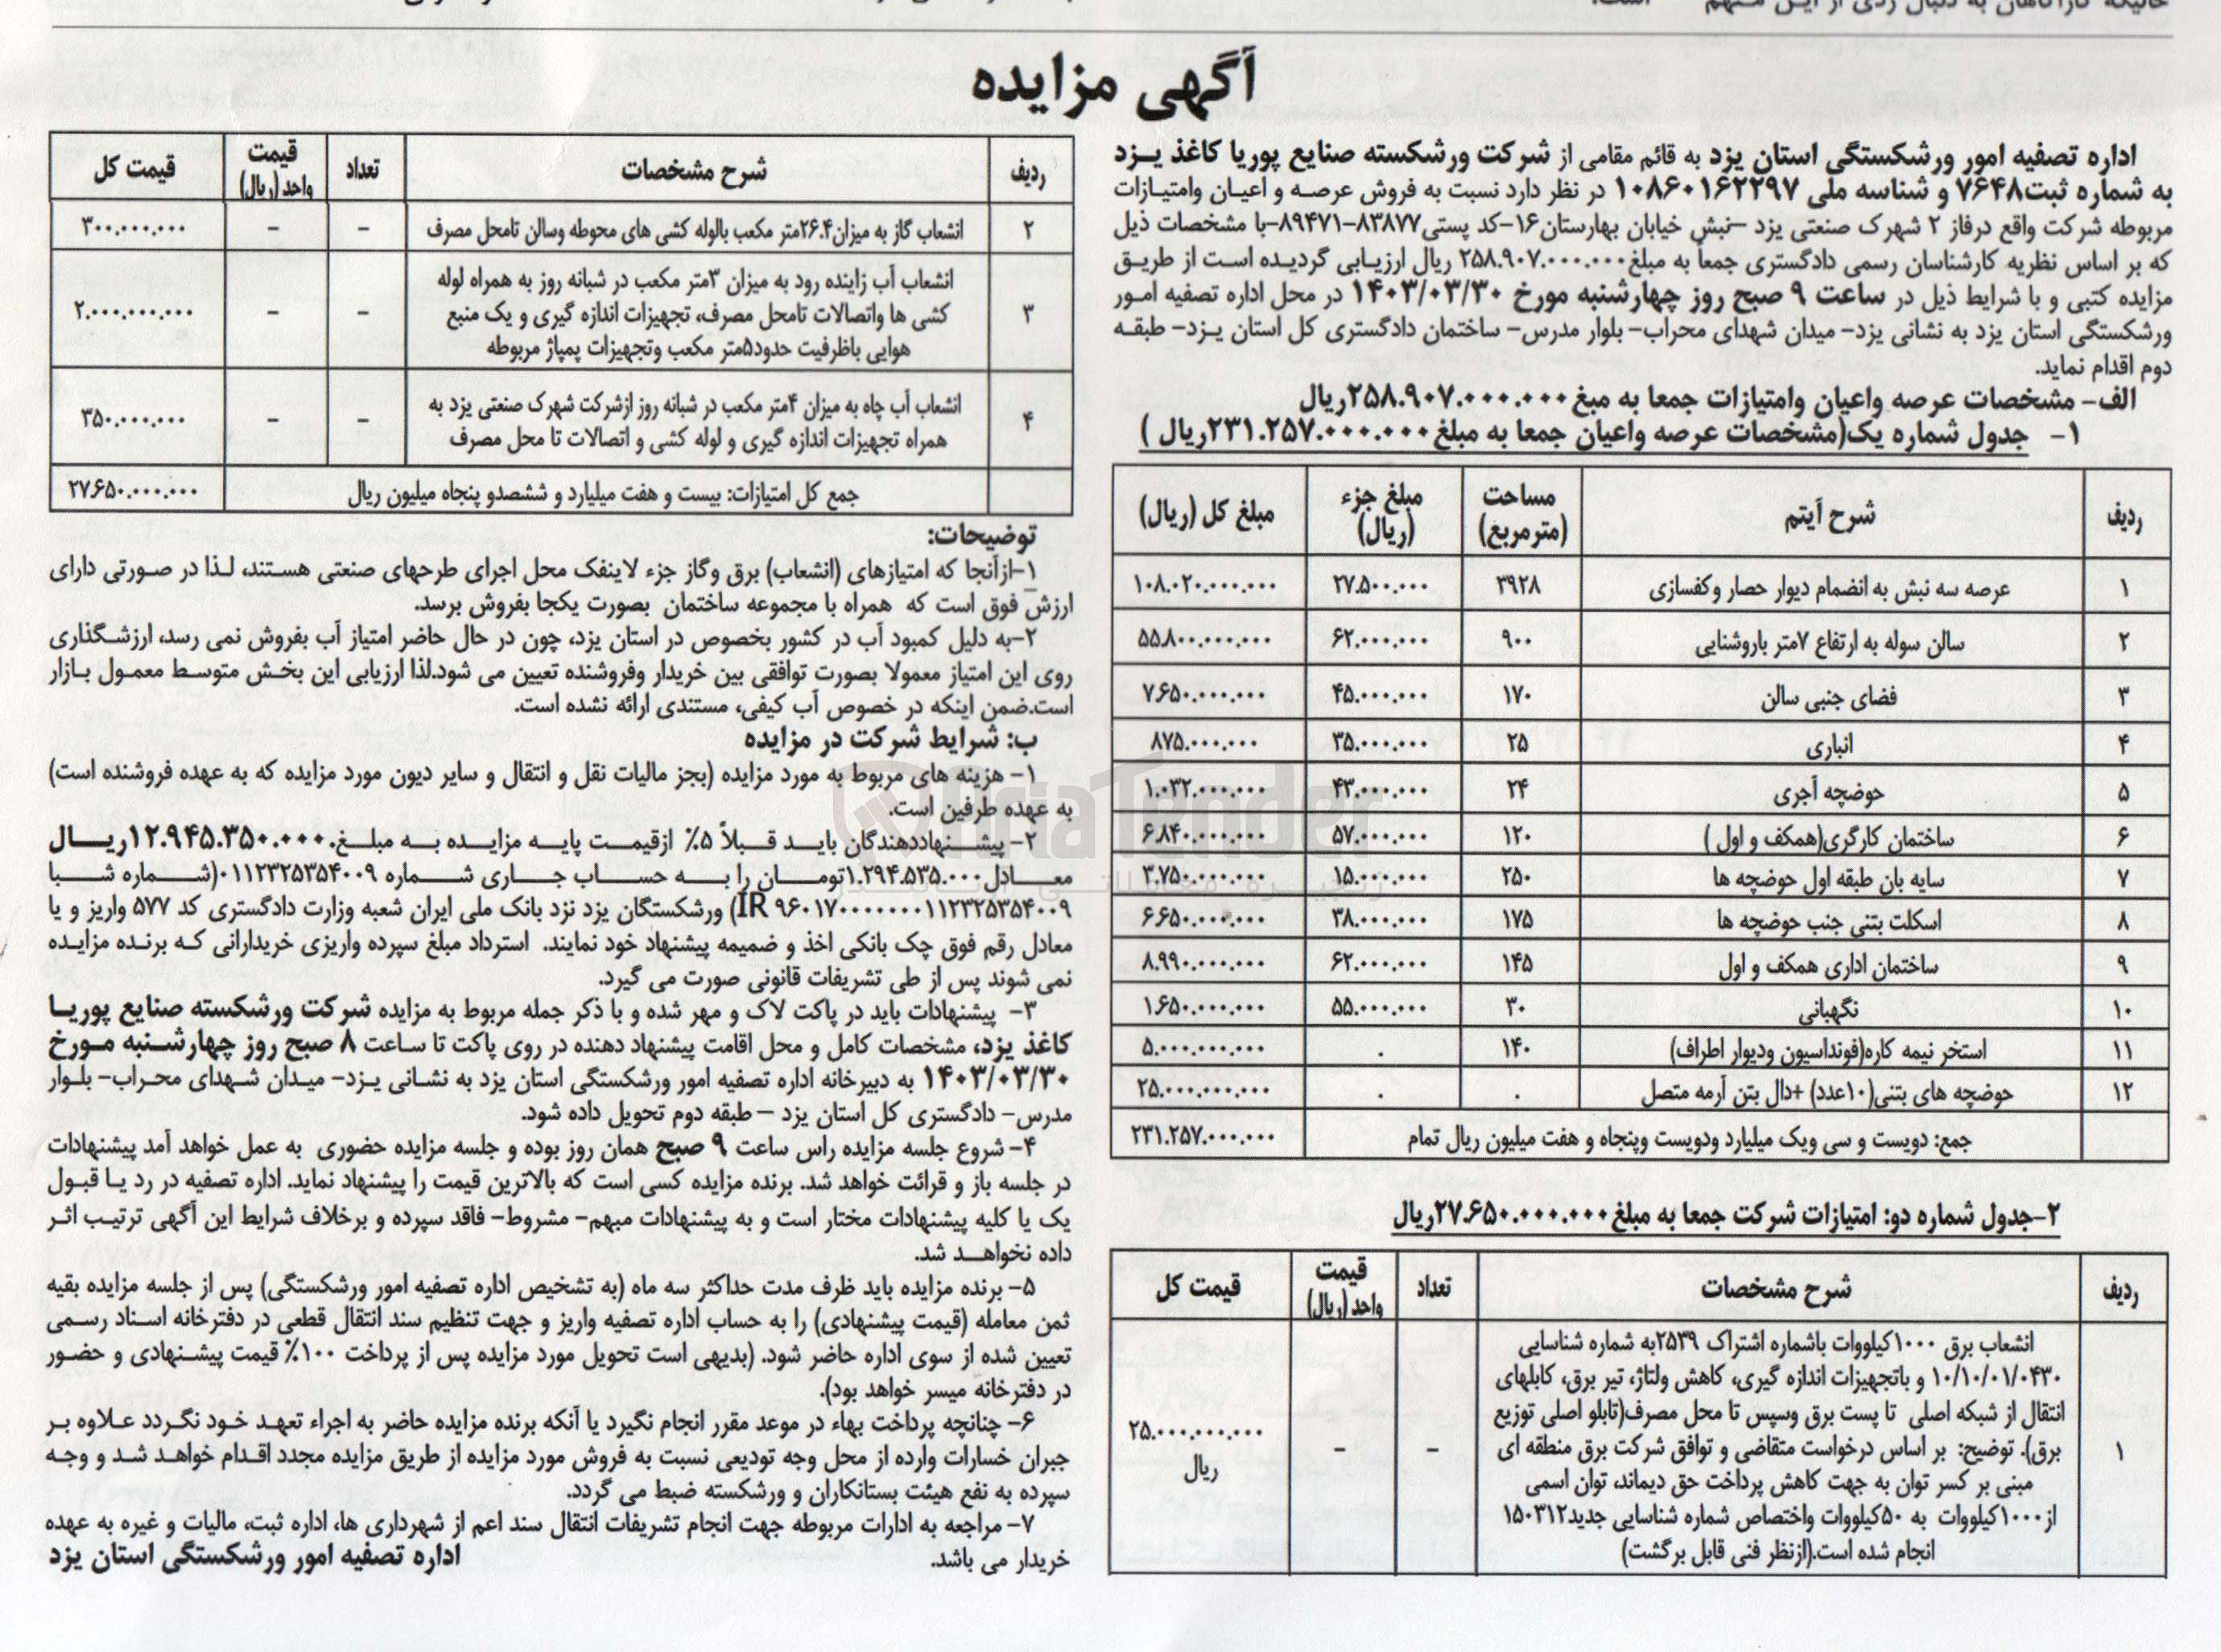 آگهی مزایده
اداره تصفیه امور ورشکستگی استان یزد به قائم مقامی از شرکت ورشکسته صنایع پوریا کاغذ یـزد
به شماره ثبت۷۶۴۸ و شناسه ملی ۱۰۸۶۰۱۶۲۲۹۷ در نظر دارد نسبت به فروش عرصـه و اعیـان وامتیـازات
مربوطه شرکت واقع درفاز ۲ شهرک صنعتی یزد –نبش خیابان بهارستان۱۶-کد پستی۸۳۸۷۷-۸۹۴۷۱-با مشخصات ذیل
که بر اساس نظریه کارشناسان رسمی دادگستری جمعاً به مبلغ۲۵۸.۹۰۷.۰۰۰.۰۰۰ ریال ارزیـابی گردیـده اسـت از طریـق
مزایده کتبی و با شرایط ذیل در ساعت ۹ صبح روز چهارشنبه مورخ ۱۴۰۳/۰۳/۳۰ در محل اداره تصفیه امـور
ورشکستگی استان یزد به نشانی یزد- میدان شهدای محراب- بلوار مدرس- ساختمان دادگستری کل استان یـزد- طبقـه
دوم اقدام نماید.
الف- مشخصات عرصه واعیان وامتیازات جمعا به مبغ ۲۵۸.۹۰۷.۰۰۰.۰۰۰ریال
۱- جدول شماره یک(مشخصات عرصه واعیان جمعا به مبلغ ۲۳۱.۲۵۷.۰۰۰.۰۰۰ریال )
ردیف شرح آیتم مساحت (مترمربع) مبلغ جزء (ریال) مبلغ کل (ریال)
۱ عرصه سه نبش به انضمام دیوار حصار وکفسازی ۳۹۲۸ ۲۷.۵۰۰.۰۰۰ ۱۰۸.۰۲۰.۰۰۰.۰۰۰
۲ سالن سوله به ارتفاع ۷متر باروشنایی ۹۰۰ ۶۲.۰۰۰.۰۰۰ ۵۵.۸۰۰.۰۰۰.۰۰۰
۳ فضای جنبی سالن ۱۷۰ ۴۵.۰۰۰.۰۰۰ ۷.۶۵۰.۰۰۰.۰۰۰
۴ انباری ۲۵ ۳۵.۰۰۰.۰۰۰ ۸۷۵.۰۰۰.۰۰۰
۵ حوضچه آجری ۲۴ ۴۳.۰۰۰.۰۰۰ ۱.۰۳۲.۰۰۰.۰۰۰
۶ ساختمان کارگری(همکف و اول ) ۱۲۰ ۵۷.۰۰۰.۰۰۰ ۶.۸۴۰.۰۰۰.۰۰۰
۷ سایه بان طبقه اول حوضچه ها ۲۵۰ ۱۵.۰۰۰.۰۰۰ ۳.۷۵۰.۰۰۰.۰۰۰
۸ اسکلت بتنی جنب حوضچه ها ۱۷۵ ۳۸.۰۰۰.۰۰۰ ۶.۶۵۰.۰۰۰.۰۰۰
۹ ساختمان اداری همکف و اول ۱۴۵ ۶۲.۰۰۰.۰۰۰ ۸.۹۹۰.۰۰۰.۰۰۰
۱۰ نگهبانی ۳۰ ۵۵.۰۰۰.۰۰۰ ۱.۶۵۰.۰۰۰.۰۰۰
۱۱ استخر نیمه کاره(فونداسیون ودیوار اطراف) ۱۴۰ ۰ ۵.۰۰۰.۰۰۰.۰۰۰
۱۲ حوضچه های بتنی(۱۰عدد) +دال بتن آرمه متصل ۰ ۰ ۲۵.۰۰۰.۰۰۰.۰۰۰
جمع: دویست و سی ویک میلیارد ودویست وپنجاه و هفت میلیون ریال تمام ۲۳۱.۲۵۷.۰۰۰.۰۰۰
۲-جدول شماره دو: امتیازات شرکت جمعا به مبلغ ۲۷.۶۵۰.۰۰۰.۰۰۰ریال
ردیف شرح مشخصات تعداد قیمت واحد (ریال) قیمت کل
۱ انشعاب برق ۱۰۰۰کیلووات باشماره اشتراک ۲۵۳۹به شماره شناسایی
۱۰/۱۰/۰۱/۰۴۳۰ و باتجهیزات اندازه گیری، کاهش ولتاژ، تیر برق، کابلهای
انتقال از شبکه اصلی تا پست برق وسپس تا محل مصرف(تابلو اصلی توزیع
برق). توضیح: بر اساس درخواست متقاضی و توافق شرکت برق منطقه ای
مبنی بر کسر توان به جهت کاهش پرداخت حق دیماند، توان اسمی
از۱۰۰۰کیلووات به ۵۰کیلووات واختصاص شماره شناسایی جدید۱۵۰۳۱۲
انجام شده است.(ازنظر فنی قابل برگشت) - - ۲۵.۰۰۰.۰۰۰.۰۰۰ ریال
ردیف شرح مشخصات تعداد قیمت واحد (ریال) قیمت کل
۲ انشعاب گاز به میزان۲۶.۴متر مکعب بالوله کشی های محوطه وسالن تامحل مصرف - - ۳۰۰.۰۰۰.۰۰۰
۳ انشعاب آب زاینده رود به میزان ۳متر مکعب در شبانه روز به همراه لوله
کشی ها واتصالات تامحل مصرف، تجهیزات اندازه گیری و یک منبع
هوایی باظرفیت حدود۵متر مکعب وتجهیزات پمپاژ مربوطه - - ۲.۰۰۰.۰۰۰.۰۰۰
۴ انشعاب آب چاه به میزان ۴متر مکعب در شبانه روز ازشرکت شهرک صنعتی یزد به
همراه تجهیزات اندازه گیری و لوله کشی و اتصالات تا محل مصرف - - ۳۵۰.۰۰۰.۰۰۰
جمع کل امتیازات: بیست و هفت میلیارد و ششصدو پنجاه میلیون ریال ۲۷.۶۵۰.۰۰۰.۰۰۰
توضیحات:
۱-ازآنجا که امتیازهای (انشعاب) برق وگاز جزء لاینفک محل اجرای طرحهای صنعتی هسـتند، لـذا در صـورتی دارای
ارزش فوق است که همراه با مجموعه ساختمان بصورت یکجا بفروش برسد.
۲-به دلیل کمبود آب در کشور بخصوص در استان یزد، چون در حال حاضر امتیاز آب بفروش نمی رسد، ارزشـگذاری
روی این امتیاز معمولا بصورت توافقی بین خریدار وفروشنده تعیین می شود.لذا ارزیابی این بخـش متوسـط معمـول بـازار
است.ضمن اینکه در خصوص آب کیفی، مستندی ارائه نشده است.
ب: شرایط شرکت در مزایده
۱- هزینه های مربوط به مورد مزایده (بجز مالیات نقل و انتقال و سایر دیون مورد مزایده که به عهده فروشنده است)
به عهده طرفین است.
۲- پیشـنهاددهندگان بایـد قـبلاً ۵٪ ازقیمـت پایـه مزایـده بـه مبلـغ ۱۲.۹۴۵.۳۵۰.۰۰۰ریـــال
معـادل۱.۲۹۴.۵۳۵.۰۰۰تومـان را بـه حسـاب جـاری شـماره ۰۱۱۲۳۲۵۳۵۴۰۰۹(شـماره شـبا
IR ۹۶۰۱۷۰۰۰۰۰۰۰۱۱۲۳۲۵۳۵۴۰۰۹) ورشکستگان یزد نزد بانک ملی ایران شعبه وزارت دادگستری کد ۵۷۷ واریز و یا
معادل رقم فوق چک بانکی اخذ و ضمیمه پیشنهاد خود نمایند. استرداد مبلغ سپرده واریزی خریدارانی کـه برنده مزایـده
نمی شوند پس از طی تشریفات قانونی صورت می گیرد.
۳- پیشنهادات باید در پاکت لاک و مهر شده و با ذکر جمله مربوط به مزایده شرکت ورشکسته صنایع پوریـا
کاغذ یزد، مشخصات کامل و محل اقامت پیشنهاد دهنده در روی پاکت تا سـاعت ۸ صبح روز چهارشـنبه مـورخ
۱۴۰۳/۰۳/۳۰ به دبیرخانه اداره تصفیه امور ورشکستگی استان یزد به نشـانی یـزد- میـدان شـهدای محـراب- بلـوار
مدرس- دادگستری کل استان یزد – طبقه دوم تحویل داده شود.
۴- شروع جلسه مزایده راس ساعت ۹ صبح همان روز بوده و جلسه مزایده حضوری به عمل خواهد آمد پیشنهادات
در جلسه باز و قرائت خواهد شد. برنده مزایده کسی است که بالاترین قیمت را پیشنهاد نماید. اداره تصفیه در رد یـا قبـول
یک یا کلیه پیشنهادات مختار است و به پیشنهادات مبهم- مشروط- فاقد سپرده و برخلاف شرایط این آگهی ترتیـب اثـر
داده نخواهـد شد.
۵- برنده مزایده باید ظرف مدت حداکثر سه ماه (به تشخیص اداره تصفیه امور ورشکستگی) پس از جلسه مزایده بقیه
ثمن معامله (قیمت پیشنهادی) را به حساب اداره تصفیه واریز و جهت تنظیم سند انتقال قطعی در دفترخانه اسـناد رسـمی
تعیین شده از سوی اداره حاضر شود. (بدیهی است تحویل مورد مزایده پس از پرداخت ۱۰۰٪ قیمت پیشـنهادی و حضـور
در دفترخانه میسر خواهد بود).
۶- چنانچه پرداخت بهاء در موعد مقرر انجام نگیرد یا آنکه برنده مزایده حاضر به اجراء تعهـد خـود نگـردد عـلاوه بـر
جبران خسارات وارده از محل وجه تودیعی نسبت به فروش مورد مزایده از طریق مزایده مجدد اقـدام خواهـد شـد و وجـه
سپرده به نفع هیئت بستانکاران و ورشکسته ضبط می گردد.
۷- مراجعه به ادارات مربوطه جهت انجام تشریفات انتقال سند اعم از شهرداری ها، اداره ثبت، مالیات و غیره به عهده
خریدار می باشد.
اداره تصفیه امور ورشکستگی استان یزد
AriaTender